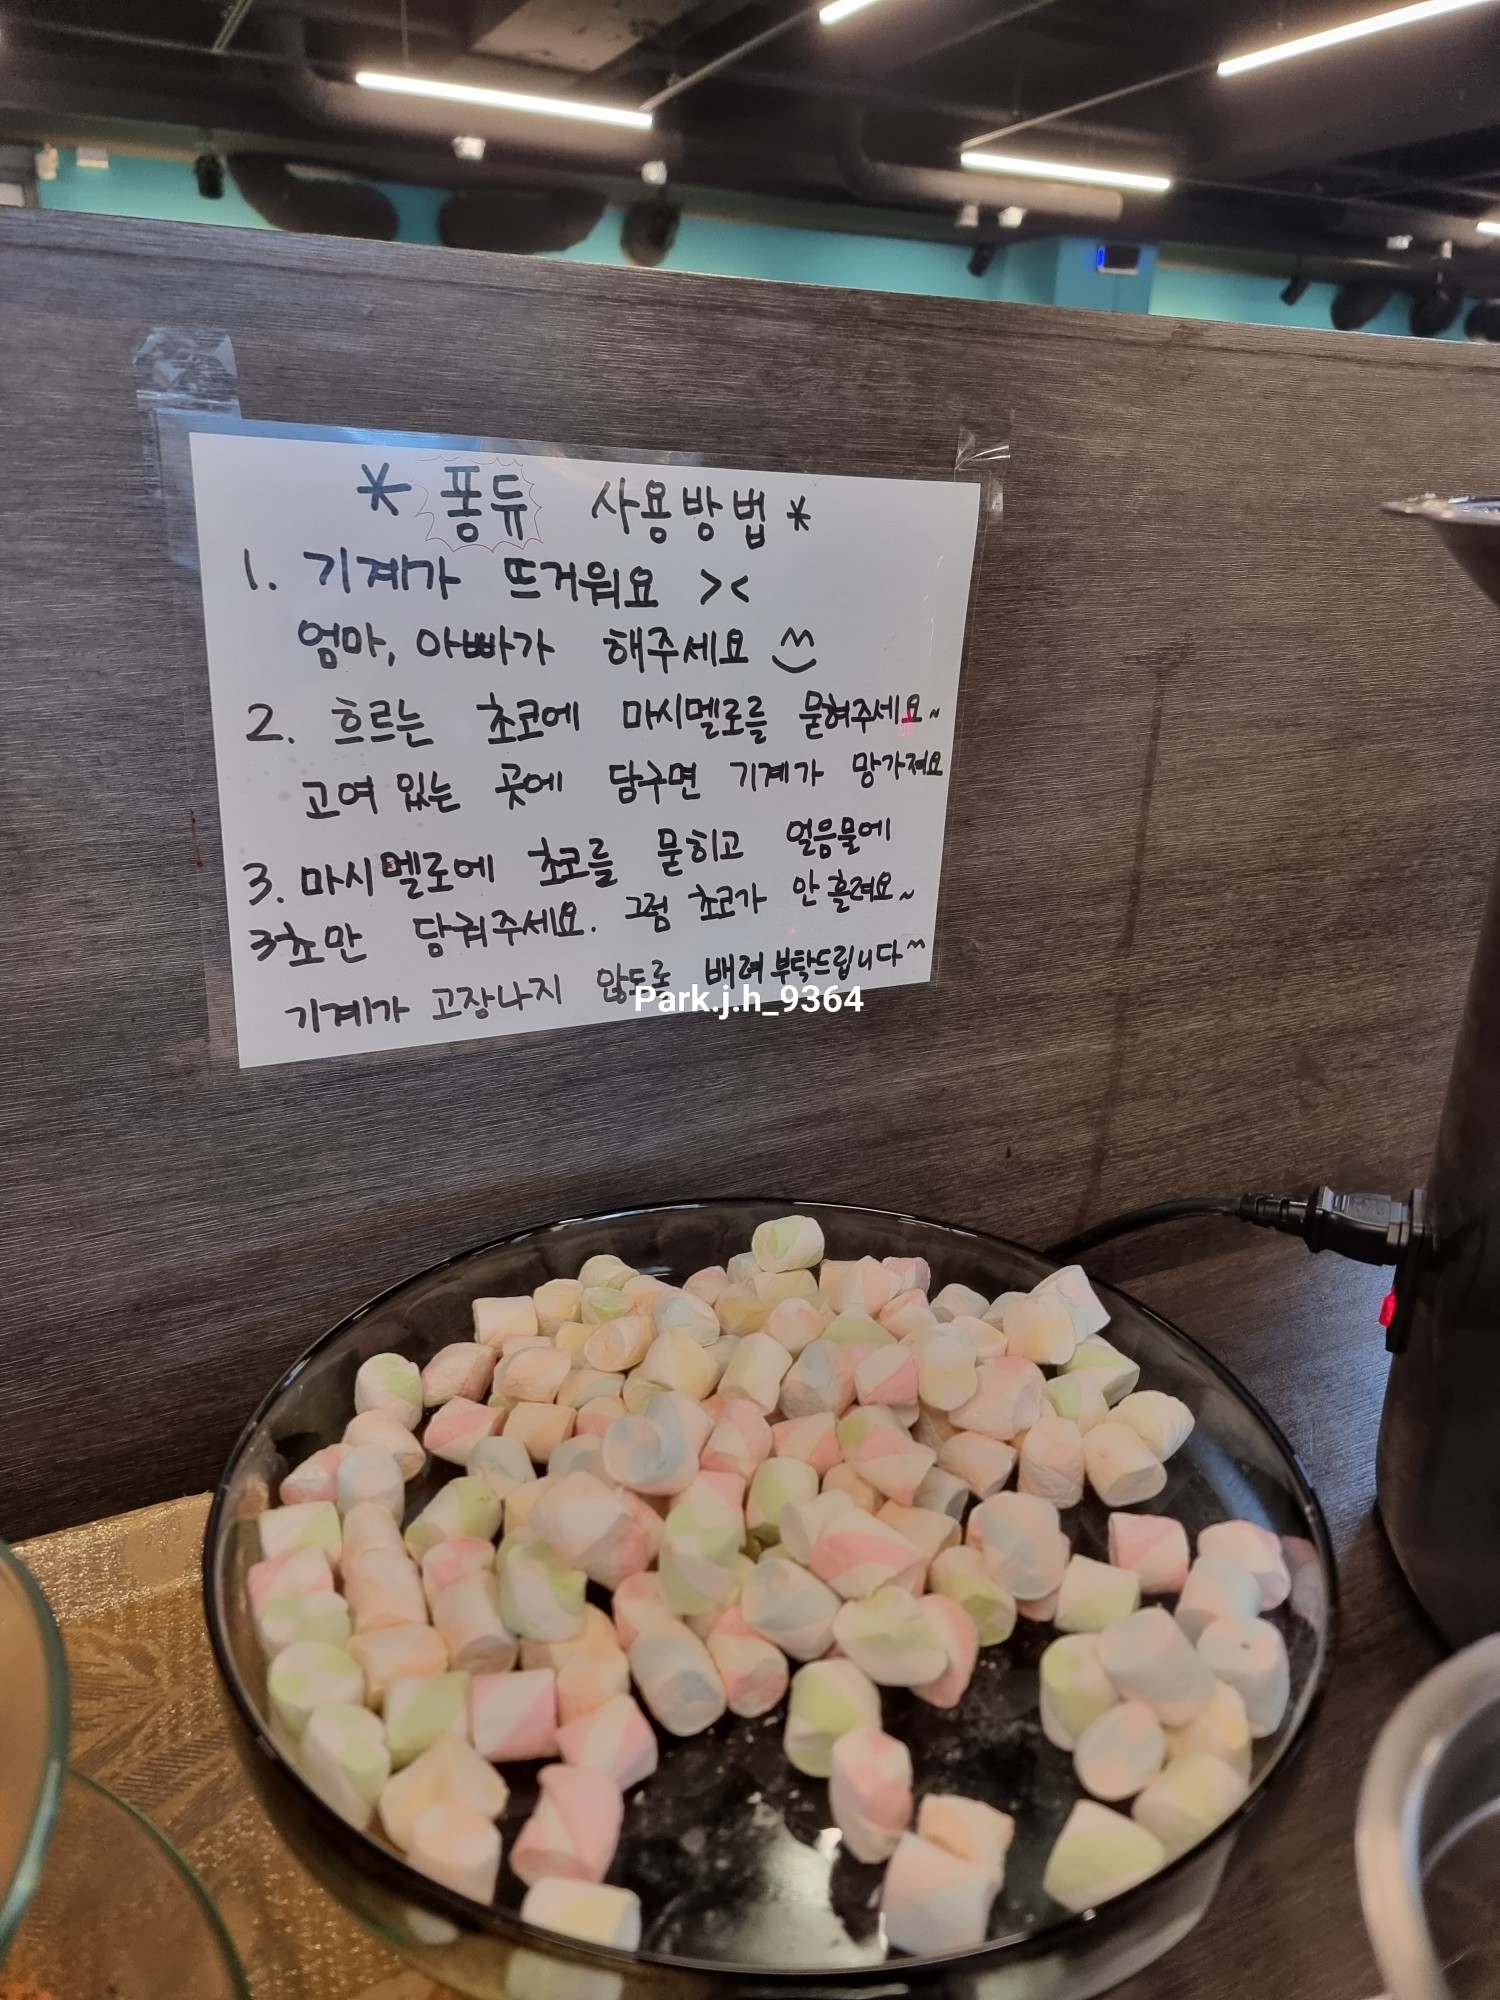 * 퐁듀 사용방법 *
1. 기계가 뜨거워요 ><
엄마, 아빠가 해주세요 ^^
2. 흐르는 초코에 마시멜로를 묻혀주세요~
고여 있는 곳에 담구면 기계가 망가져요
3. 마시멜로에 초코를 묻히고 얼음물에
3초만 담궈주세요. 그럼 초코가 안 흘려요~
기계가 고장나지 않도록 배려 부탁드립니다^^
Park.j.h_9364